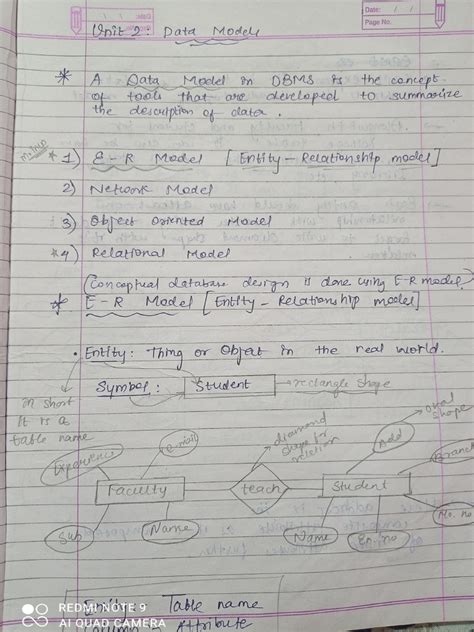 Date: / /
Page No.
Unit 2: Data Models
* A Data Model in DBMS is the concept
of tools that are developed to summarize
the description of data.
* 1) E-R Model [Entity-Relationship model]
2) Network Model
3) Object Oriented Model
*4) Relational Model
(Conceptual database design is done using E-R model.)
* E-R Model [Entity-Relationship model]
• Entity: Thing or Object in the real world.
Symbol: Student → rectangle shape
in short
It is a
table name
diamond
shape for
relation
oval
shape
Experience
e-mail
Add
Branch
Faculty
teach
Student
Sub
Name
Name
En.no
Mo. no
Entity Table name
Column Attribute
REDMI NOTE 9
AI QUAD CAMERA